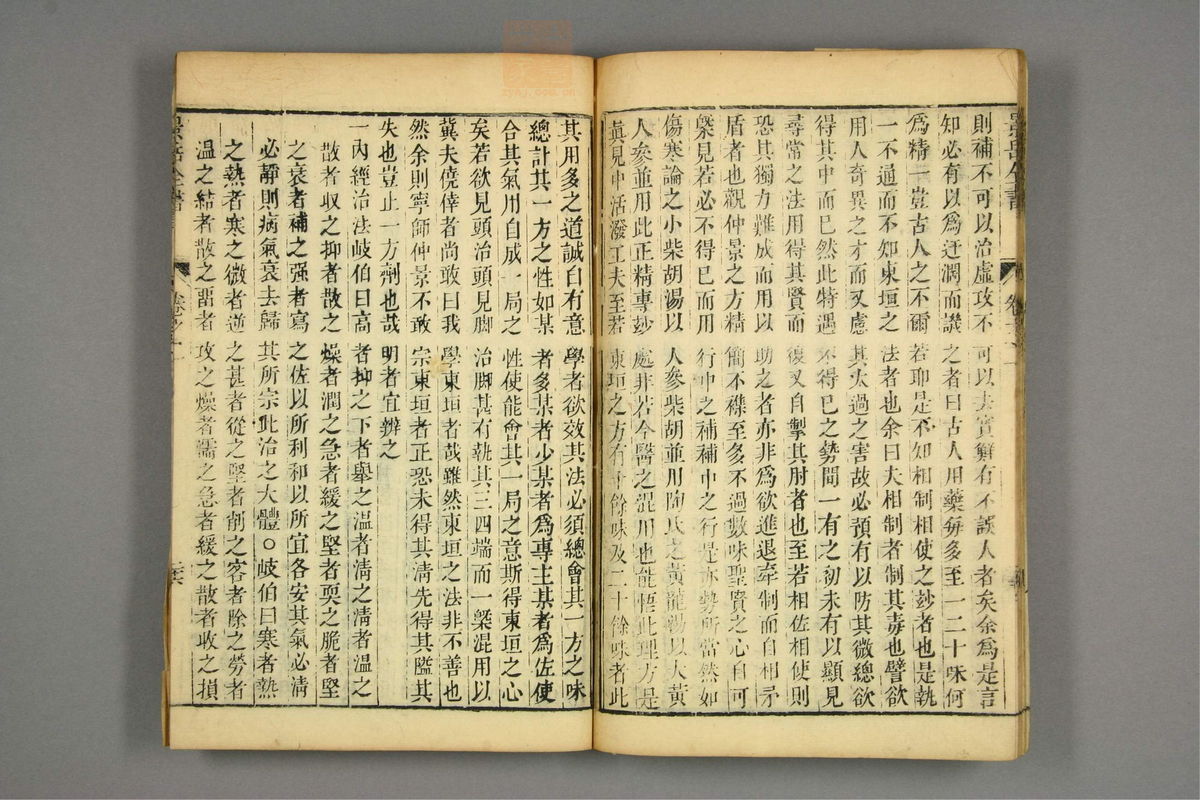 則補不可以治虛攻不可以去實鮮有不誤人者矣余爲是言
知必有以爲迂濶而議之者曰古人用藥每多至一二十味何
爲精一豈古人之不爾若耶是不知相制相使之玅者也是執
一不通而不知東垣之法者也余曰夫相制者制其毒也譬欲
用人奇異之才而又慮其太過之害故必預有以防其微總欲
得其中而已然此特遇不得已之勢間一有之初未有以顯見
尋常之法用得其賢而復又自掣其肘者也至若相佐相使則
恐其獨力難成而用以助之者亦非爲欲進退牽制而自相矛
盾者也觀仲景之方精簡不襍至多不過數味聖賢之心自可
槩見若必不得已而用行中之補補中之行是亦勢所當然如
傷寒論之小柴胡湯以人參柴胡並用陶氏之黃龍湯以大黃
人參並用此正精專玅處非若今醫之混用也能悟此理方是
眞見中活潑工夫至若東垣之方有十餘味及二十餘味者此
其用多之道誠自有意學者欲效其法必須總會其一方之味
總計其一方之性如某者多某者少某者爲專主某者爲佐使
合其氣用自成一局之性使能會其一局之意斯得東垣之心
矣若欲見頭治頭見脚治脚甚有執其三四端而一槩混用以
冀夫僥倖者尚敢曰我學東垣者哉雖然東垣之法非不善也
然余則寧師仲景不敢宗東垣者正恐未得其淸先得其隘其
失也豈止一方劑也哉明者宜辨之
一內經治法岐伯曰高者抑之下者舉之溫者淸之淸者溫之
散者收之抑者散之燥者潤之急者緩之堅者耎之脆者堅
之衰者補之强者寫之佐以所利和以所宜各安其氣必淸
必靜則病氣衰去歸其所宗此治之大體○岐伯曰寒者熱
之熱者寒之微者逆之甚者從之堅者削之客者除之勞者
溫之結者散之畱者攻之燥者濡之急者緩之散者收之損
景岳全書
卷之
景岳全書
卷之
zyhj.com.cn